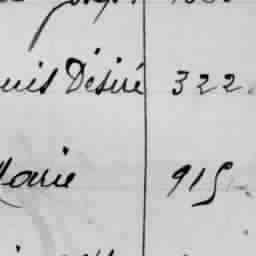 uis Désiré 322
Marie 915